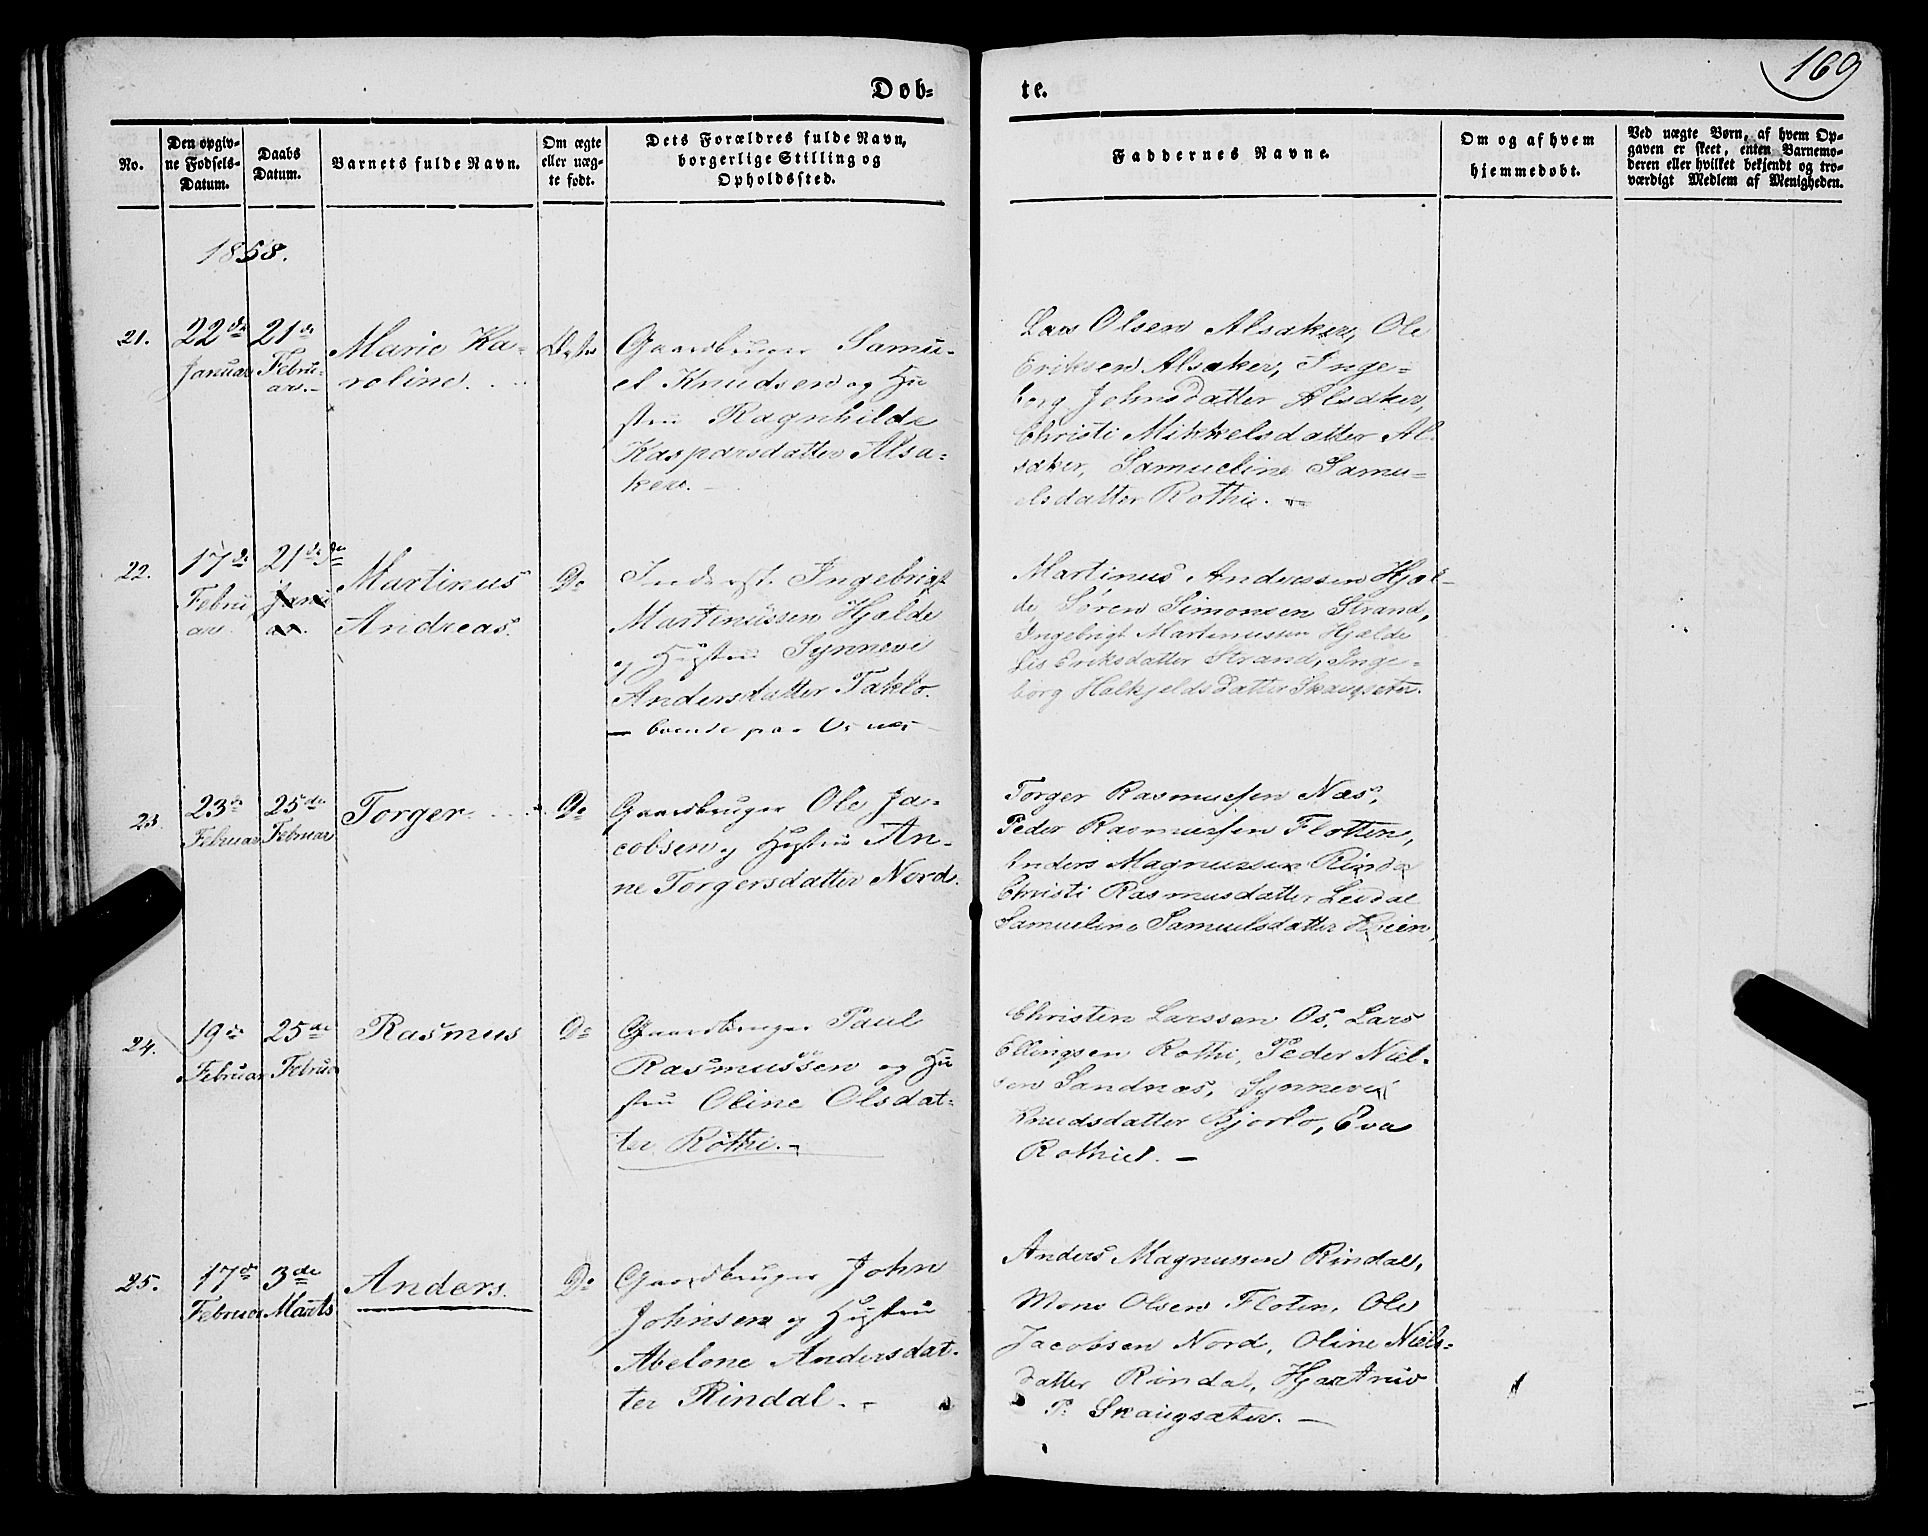 169
Døb=
te.
No.
Den opgiv-
ne Fødsels-
Datum.
Daabs
Datum.
Barnets fulde Navn.
Om ægte
eller uæg-
te født.
Dets Forældres fulde Navn,
borgerlige Stilling og
Opholdssted.
Faddernes Navne.
Om og af hvem
hjemmedøbt.
Ved uægte Børn, af hvem Op-
gaven er skeet, enten Barnemo-
deren eller hvilket bekjendt og tro-
værdigt Medlem af Menigheden.
1858.
21.
22de
Januar
21de
Febru-
ar.-
Marie Ka-
roline.
Ægte
Gaardbruger Samu-
el Knudsen og Hu
stru Ragnhilde
Kasparsdatter Alsa-
ker. -
Lars Olsen Alsaker, Ole
Eriksen Alsaker, Inge-
borg Johnsdatter Alsaker,
Christi Mikkelsdatter Al-
saker, Samueline Samu-
elsdatter Rothie. -
22.
17de
Febru
ar.
21de
Martinus
Andreas.
Do
Inderst. Ingebrigt
Martinussen Hjelde
og Hustru Synnevi
Andersdatter Taklo.
- boende paa Os
Martinus Anderssen Hjel-
de, Søren Simonsen Strand,
Ingebrigt Martinussen Hjelde
Lis Eriksdatter Strand, Inge-
borg Halkjeldsdatter Skaugseter.
23.
23de
Februar
25de
Februar
Torger.
Do
Gaardbruger Ole Ja-
cobsen og Hustru An-
ne Torgersdatter Nord.
Torger Rasmussen Næs,
Peder Rasmussen Flotten,
Anders Magnussen Rinda
Christi Rasmusdatter Leidal
Samueline Samuelsdatter Heien,
24.
19de
Februar
25de
Februa
Rasmus
Do
Gaardbruger Paul
Rasmussen og Hu
stru Oline Olsdat-
ter Röthi.-
Christen Larssen Os, Lars
Ellingsen Rothi, Peder Niel-
sen Sandnæs, Synnevi
Knudsdatter Bjorlo, Eva
Rothiet. -
25.
17de
Februar
3de
Marts
Anders.
Do
Gaardbruger John
Johnsen og Hustru
Abelone Andersdat-
ter Rindal. -
Anders Magnussen Rindal,
Mons Olsen Floten, Ole
Jacobsen Nord, Oline Niels-
datter Rindal, Hjertrud
P. Skaugsæter. -